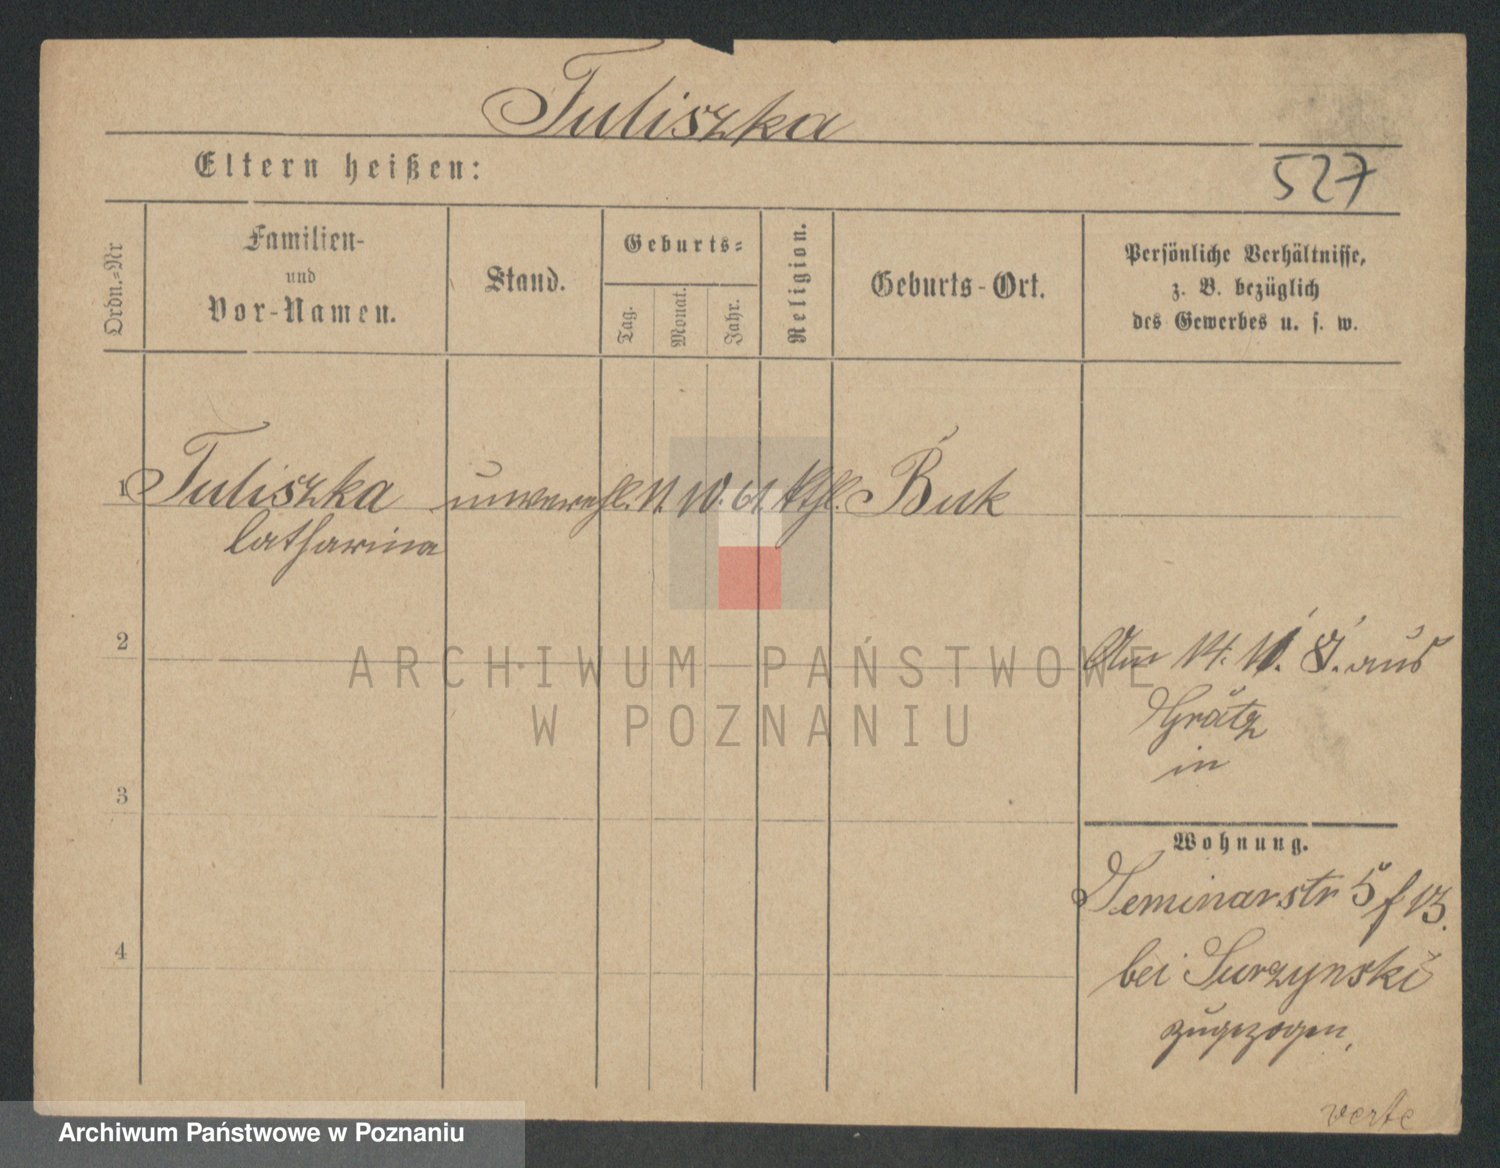 Tuliszka
Eltern heißen:
527
Ordn.=Nr
Familien-
und
Vor-Namen.
Stand.
Geburts=
Tag.
Monat.
Jahr.
Religion.
Geburts-Ort.
Persönliche Verhältnisse,
z. B. bezüglich
des Gewerbes u. s. w.
1 Tuliszka unverehl. 11. 10. 61. kthl. Buk
Catharina
2
Am 14. 11. 81. aus
Grätz
in
3
Wohnung.
Seminarstr 5 f 13.
bei Surzynski
zugezogen,
4
verte
ARCHIWUM PAŃSTWOWE
W POZNANIU
Archiwum Państwowe w Poznaniu